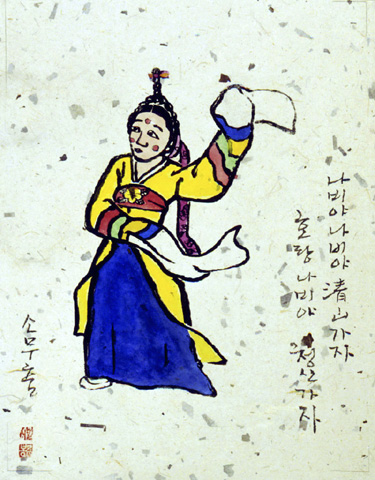 나비야 나비야 清山가자
호랑나비야 청산가자
소무춤